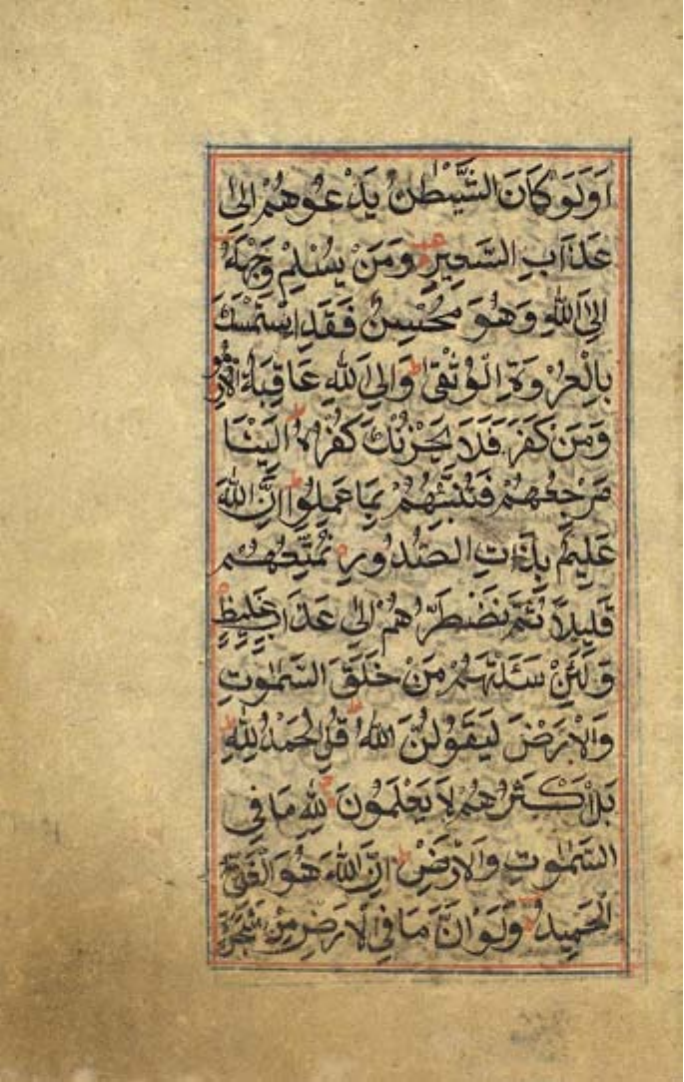 اَوَلَوْ كَانَ الشَّيْطٰنُ يَدْعُوهُمْ اِلىٰ
عَذَابِ السَّعِيرِ وَمَنْ يُسْلِمْ وَجْهَهُ
اِلَى اللّٰهِ وَهُوَ مُحْسِنٌ فَقَدِ اسْتَمْسَكَ
بِالْعُرْوَةِ الْوُثْقىٰ وَاِلَى اللّٰهِ عَاقِبَةُ الْاُمُورِ
وَمَنْ كَفَرَ فَلَا يَحْزُنْكَ كُفْرُهُ اِلَيْنَا
مَرْجِعُهُمْ فَنُنَبِّئُهُمْ بِمَا عَمِلُوا اِنَّ اللّٰهَ
عَلِيمٌ بِذَاتِ الصُّدُورِ نُمَتِّعُهُمْ
قَلِيلًا ثُمَّ نَضْطَرُّهُمْ اِلىٰ عَذَابٍ غَلِيظٍ
وَلَئِنْ سَئَلْتَهُمْ مَنْ خَلَقَ السَّمٰوٰتِ
وَالْاَرْضَ لَيَقُولُنَّ اللّٰهُ قُلِ الْحَمْدُ لِلّٰهِ
بَلْ اَكْثَرُهُمْ لَا يَعْلَمُونَ لِلّٰهِ مَا فِى
السَّمٰوٰتِ وَالْاَرْضِ اِنَّ اللّٰهَ هُوَ الْغَنِىُّ
الْحَمِيدُ وَلَوْ اَنَّ مَا فِى الْاَرْضِ مِنْ شَجَرَةٍ